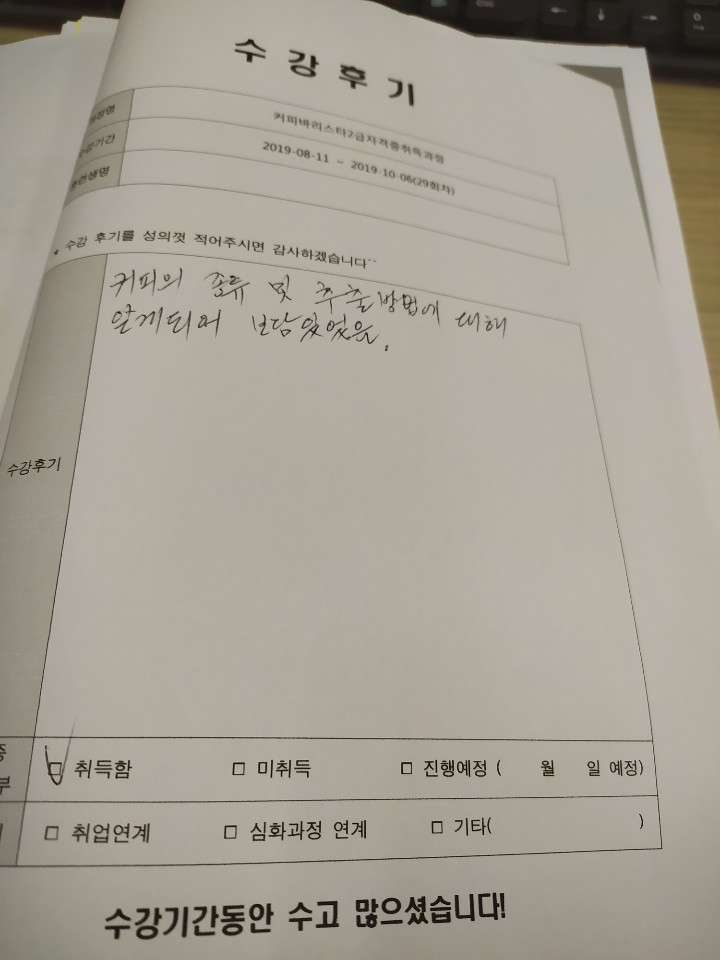 수 강 후 기
과정명 커피바리스타2급자격증취득과정
수강기간 2019-08-11 ~ 2019-10-06(29회차)
훈련생명
* 수강 후기를 성의껏 적어주시면 감사하겠습니다^^
커피의 종류 및 추출방법에 대해
알게되어 보람있었음.
수강후기
□ 취득함 □ 미취득 □ 진행예정 ( 월 일 예정)
□ 취업연계 □ 심화과정 연계 □ 기타( )
수강기간동안 수고 많으셨습니다!